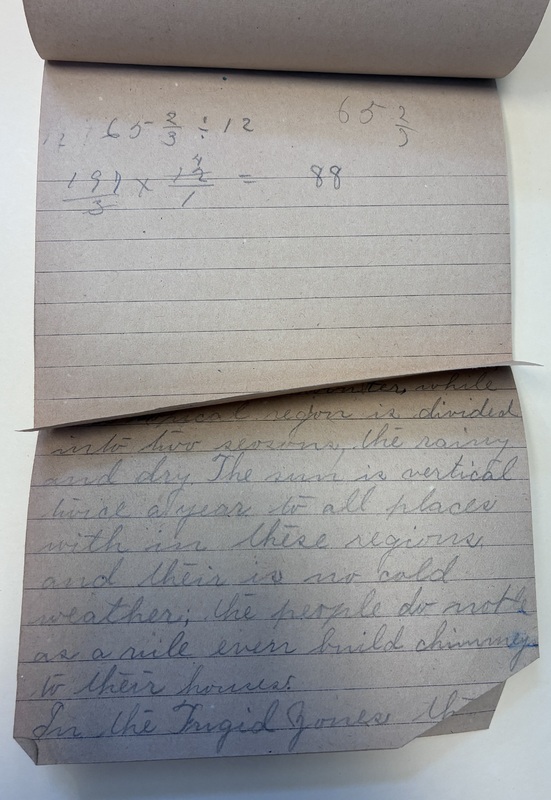 65 2/3 ÷ 12
65 2/3
197/3 × 12/1 = 88
4
while
region is divided
into two seasons, the rainy
and dry The sun is vertical
twice a year to all places
with in these regions,
and their is no cold
weather; the people do not
as a rule even build chimneys
to their houses.
In the Frigid Zones th